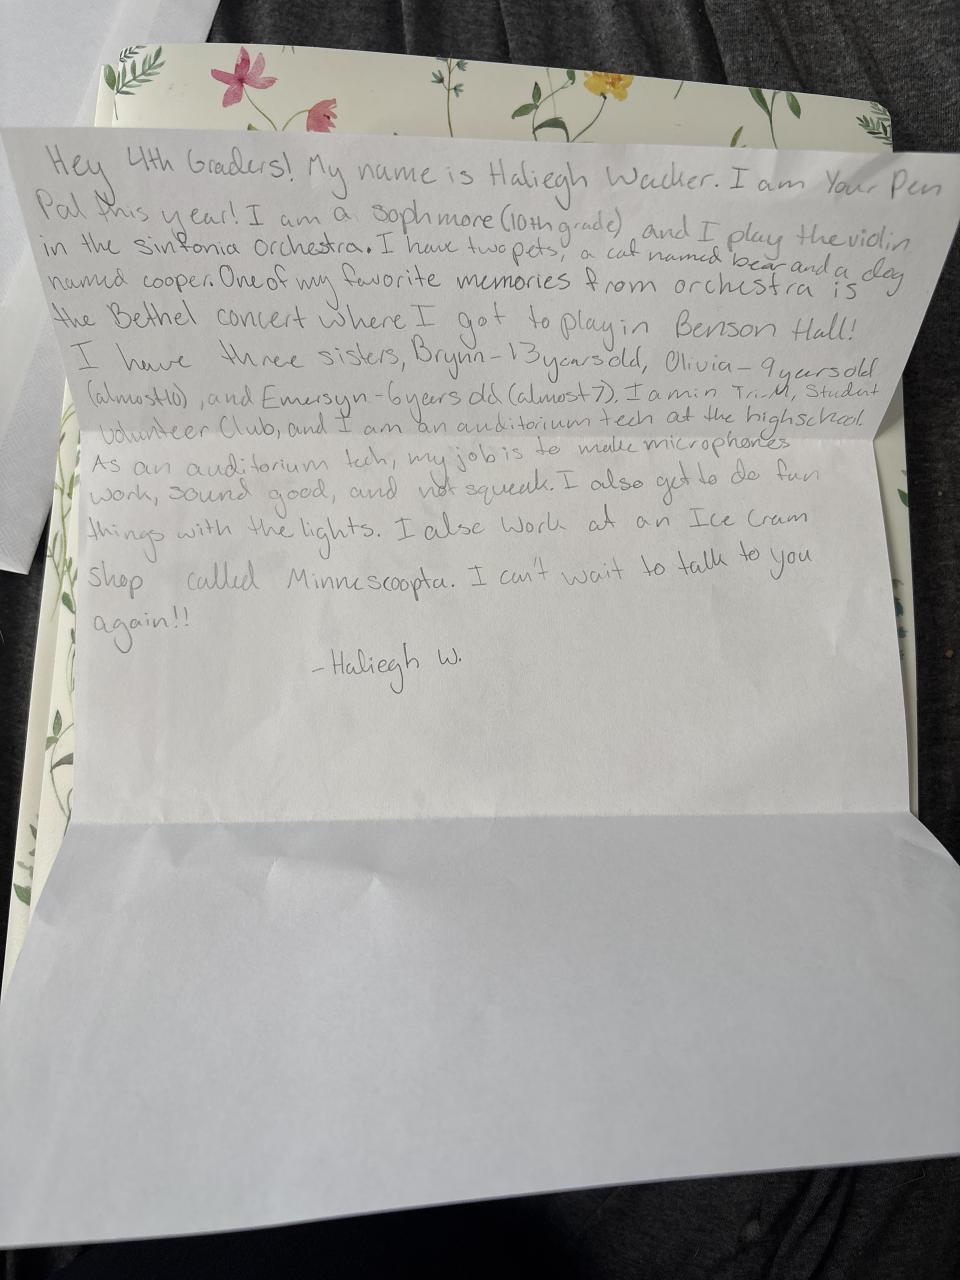 Hey 4th Graders! My name is Haliegh Wacker. I am Your Pen
Pal this year! I am a sophmore (10th grade) and I play the violin
in the sinfonia orchestra. I have two pets, a cat named bear and a dog
named cooper. One of my favorite memories from orchestra is
the Bethel concert where I got to play in Benson Hall!
I have three sisters, Brynn - 13 years old, Olivia - 9 years old
(almost 10), and Emersyn - 6 years old (almost 7). I am in Tri-M, Student
Volunteer Club, and I am an auditorium tech at the highschool.
As an auditorium tech, my job is to make microphones
work, sound good, and not squeak. I also get to do fun
things with the lights. I also work at an Ice Cream
Shop called Minnescoopta. I can't wait to talk to you
again!!
- Haliegh W.